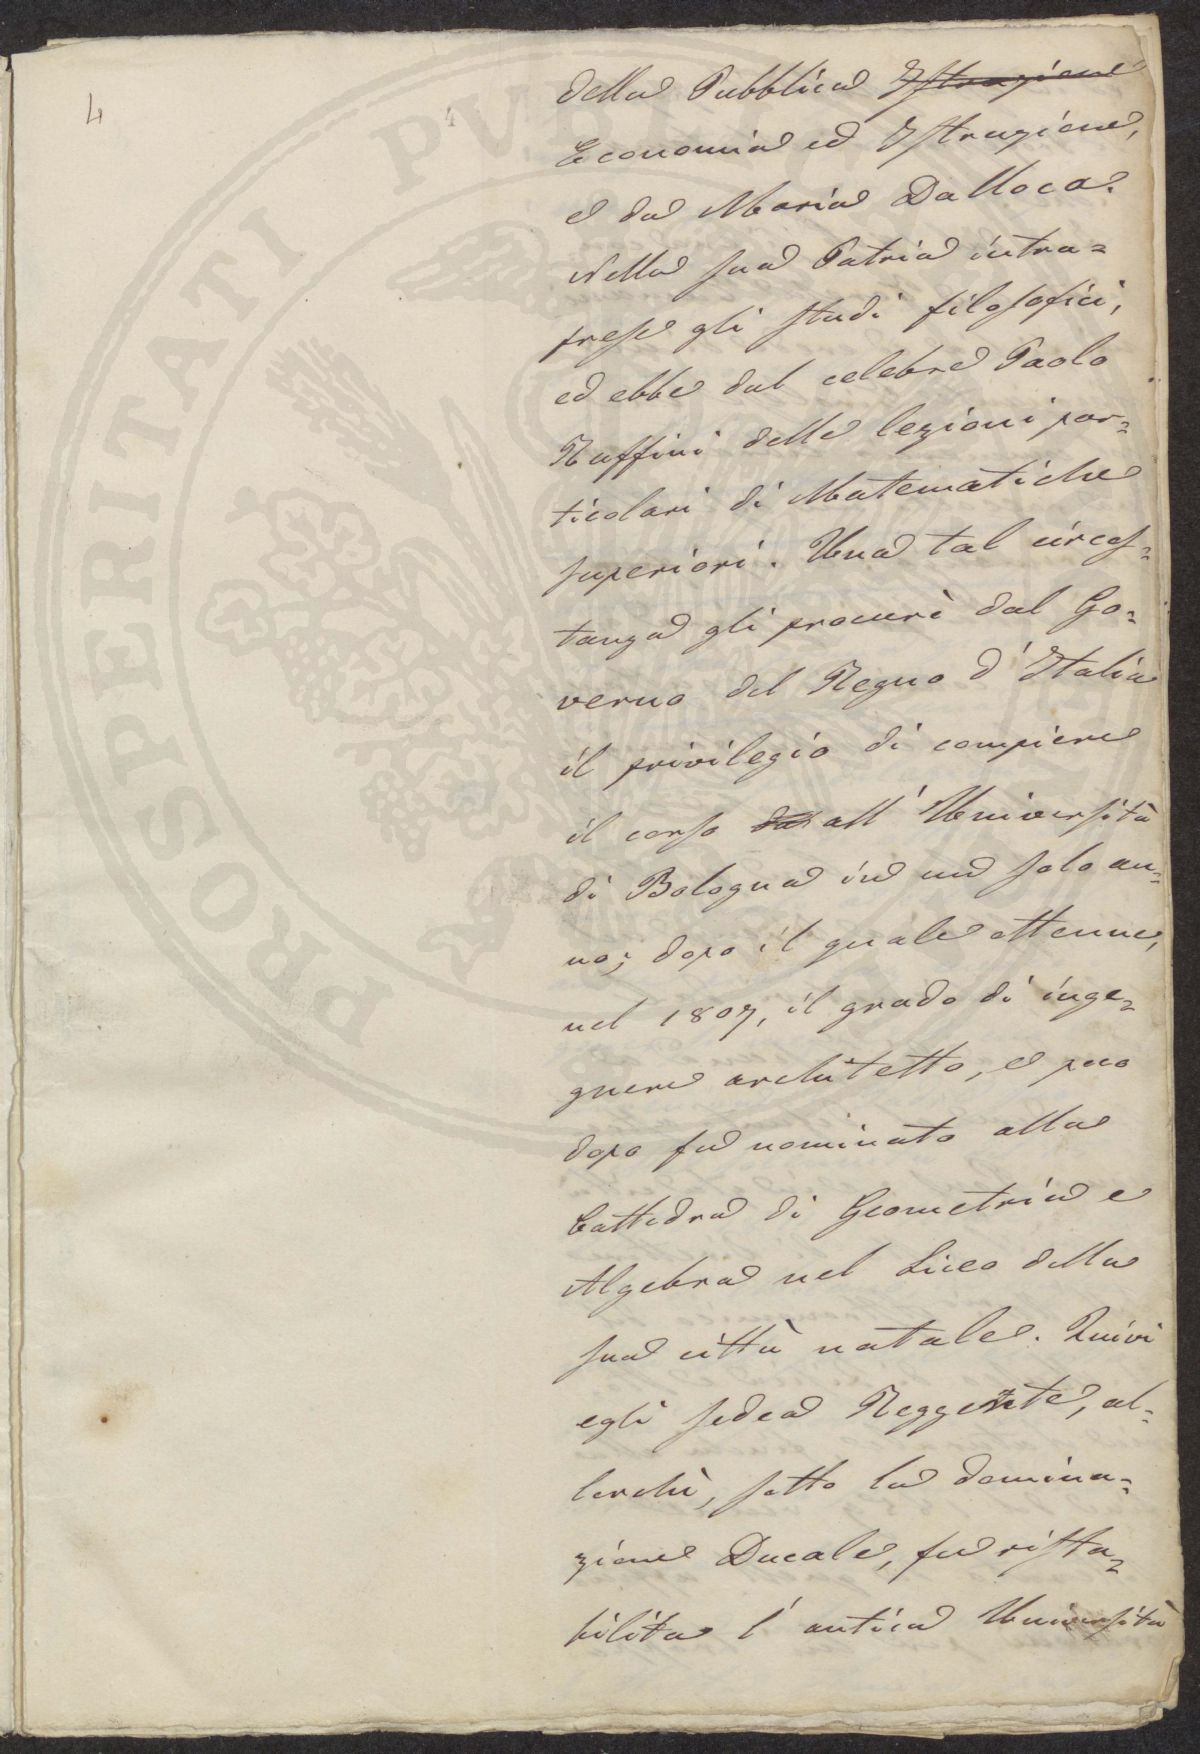 4
della Pubblica Istruzione
Economia ed Istruzione,
e da Maria Dalloca.
Nella sua Patria intra=
prese gli studi filosofici,
ed ebbe dal celebre Paolo
Ruffini delle lezioni par=
ticolari di Matematiche
superiori. Una tal circos=
tanza gli procurò dal Go=
verno del Regno d'Italia
il privilegio di compiere
il corso all'Università
di Bologna in un solo an=
no; dopo il quale ottenne,
nel 1807, il grado di inge=
gnere architetto, e poco
dopo fu nominato alla
Cattedra di Geometria e
Algebra nel Liceo della
sua città natale. Quivi
egli sedea Reggente, al=
lorchè, sotto la domina=
zione Ducale, fu rista=
bilita l'antica Università
PROSPERITATI PUBLICAE